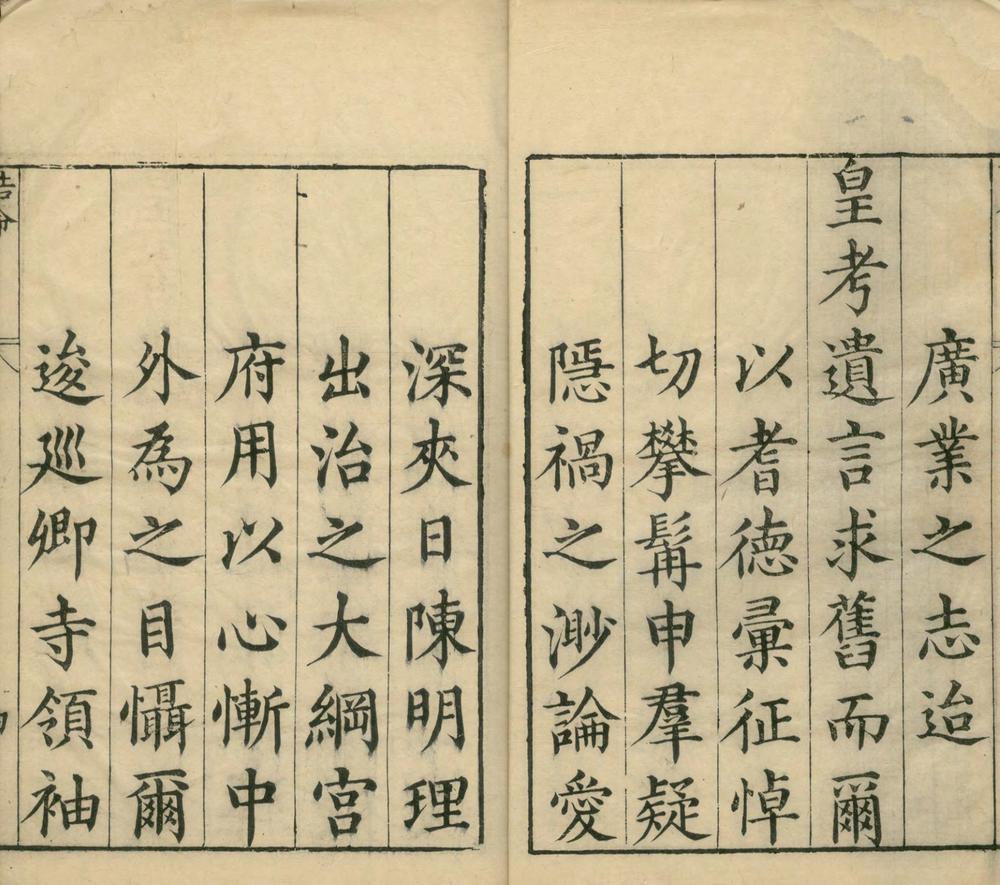 廣業之志迨
皇考遺言求舊而爾
以耆德彙征悼
切攀髯申羣疑
隱禍之渺論愛
深夾日陳明理
出治之大綱宮
府用以心慚中
外為之目懾爾
逡巡卿寺領袖